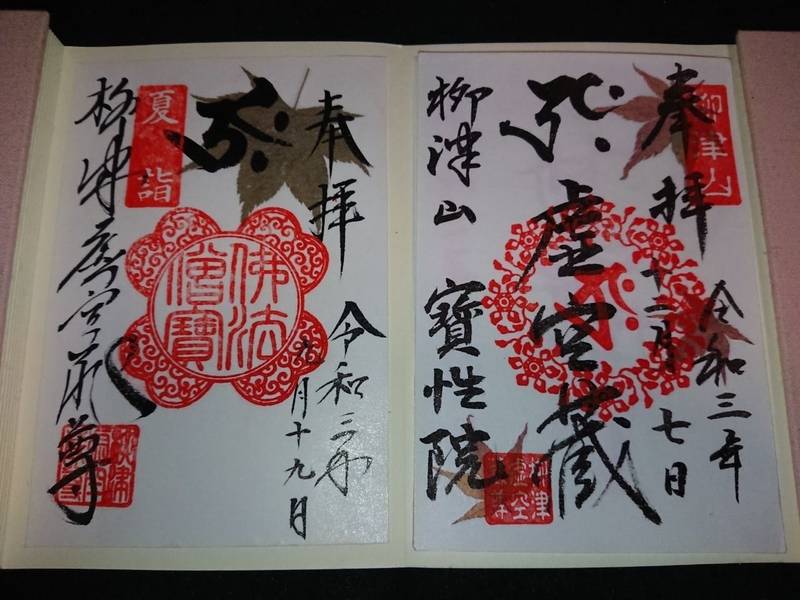 柳津山
奉拝
令和三年
十二月七日
虚空蔵
柳津
虚空
柳津山
寳性院
奉拝
令和三年
九月十九日
佛法
僧寶
夏詣
柳津虚空蔵尊